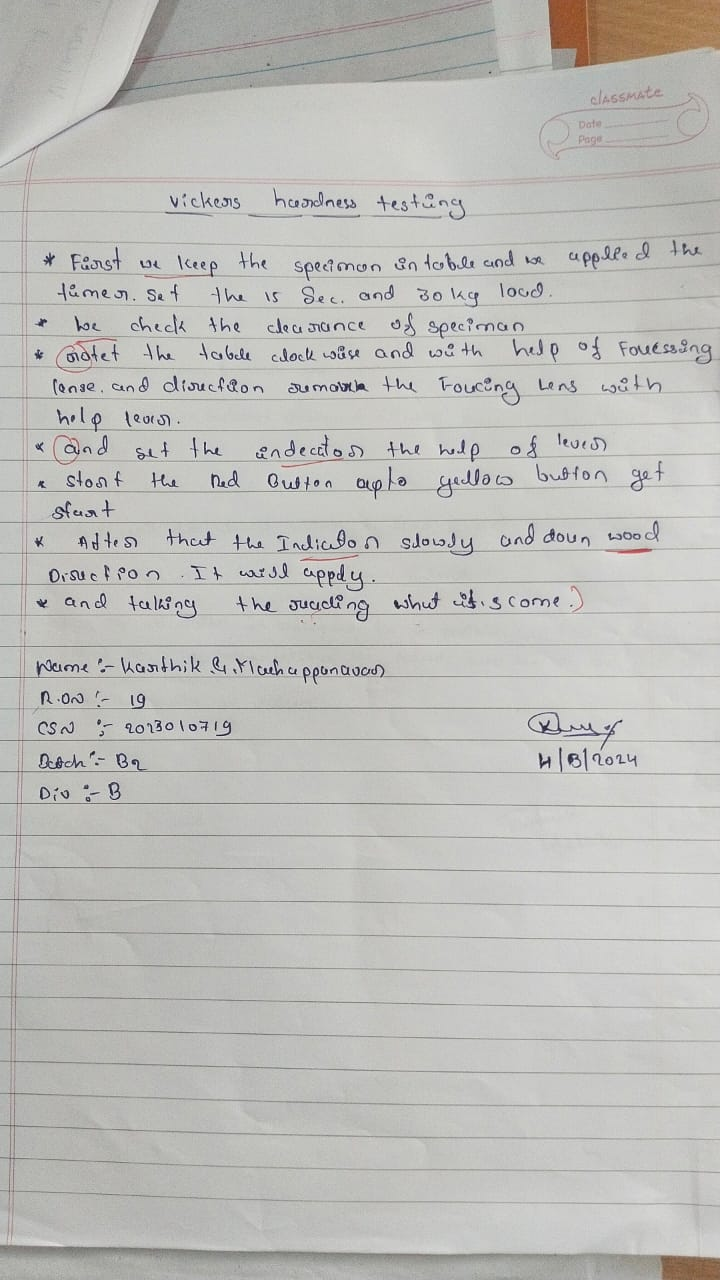 classmate
Date
Page
Vickers hardness testing
* First we keep the specimen in table and we applied the
timer. Set the 15 Sec. and 30 kg load.
* we check the clearance of speciman
* rotet the table clock wise and with help of Foucssing
lense. and direction remove the Foucing Lens with
help lever.
* and set the indecator the help of lever
* start the Red Button upto yellow button get
start
* After that the Indicator slowly and doun wood
Direction. It will apply.
* and talking the reading what it is come.
Name :- Karthik
R.ON :- 19
CSN :- 2023010719
Batch :- B2
Div :- B
/2024